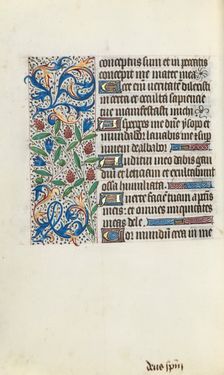 conceptus sum et in peccatis
concepit me mater mea
Ecce enim veritatem dilexisti
incerta et occulta sapientie
tue manifestasti michi
Asperges me dñe ysopo et
mundabor lavabis me et sup
nivem dealbabor
Auditui meo dabis gau
dium et leticiam et exultabunt
ossa humiliata
Averte faciem tuam a pctis
meis et omnes iniquitates
meas dele
Cor mundum crea in me
deus spm